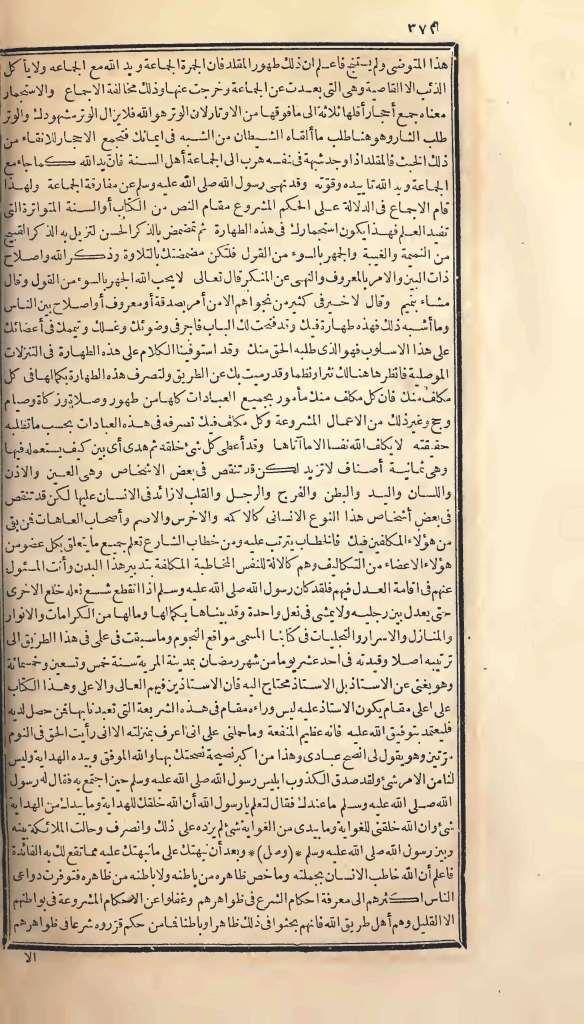 ٣٧٣
هذا المتوضئ ولم يستنج فاعلم ان ذلك طهور المقلد فان الجمرة الجماعة ويد الله مع الجماعه ولا يأكل
الذئب الا القاصية وهى التى بعدت عن الجماعة وخرجت عنها وذلك مخالفة الاجماع والاستجمار
معناه جمع أحجار أقلها ثلاثة الى ما فوقها من الاوتار لان الوتر هو الله فلا يزال الوتر مشهودك والوتر
طلب الثار وهو هنا طلب ما ألقاه الشيطان من الشبه فى ايمانك فتجمع الاحجار للانقاء من
ذلك الخبث فالمقلد اذا وجد شبهة فى نفسه هرب الى الجماعة أهل السنة فان يد الله كما جاء مع
الجماعة ويد الله تأييده وقوته وقد نهى رسول الله صلى الله عليه وسلم عن مفارقة الجماعة ولهذا
قام الاجماع فى الدلالة على الحكم المشروع مقام النص من الكتاب أو السنة المتواترة التى
تفيد العلم فهذا يكون استجمارك فى هذه الطهارة ثم تمضمض بالذكر الحسن لتزيل به الذكر القبيح
من النميمة والغيبة والجهر بالسوء من القول فلتكن مضمضتك بالتلاوة وذكر الله واصلاح
ذات البين والامر بالمعروف والنهى عن المنكر قال تعالى لا يحب الله الجهر بالسوء من القول وقال
مشاء بنميم وقال لا خير فى كثير من نجواهم الا من أمر بصدقة أو معروف أو اصلاح بين الناس
وما أشبه ذلك فهذه طهارة فيك وقد فتحت لك الباب فاجر فى وضوئك وغسلك وتيممك فى أعضائك
على هذا الاسلوب فهو الذى طلبه الحق منك وقد استوفينا الكلام على هذه الطهارة فى التنزلات
الموصلية فانظرها هنالك نثرا ونظما وقد رميت بك عن الطريق ولتصرف هذه الطهارة بكمالها فى كل
مكلف منك فان كل مكلف منك مأمور بجميع العبادات كلها من طهور وصلاة وزكاة وصيام
وحج وغير ذلك من الاعمال المشروعة وكل مكلف فيك تصرفه فى هذه العبادات بحسب ما تطلبه
حقيقته لا يكلف الله نفسا الا ما آتاها وقد أعطى كل شئ خلقه ثم هدى أى بين كيف يستعمله فيها
وهى ثمانية أصناف لا تزيد لكن قد تنقص فى بعض الاشخاص وهى العين والاذن
واللسان واليد والبطن والفرج والرجل والقلب لا زائد فى الانسان عليها لكن قد تنقص
فى بعض أشخاص هذا النوع الانسانى كالاكمه والاخرس والاصم وأصحاب العاهات فمن بقى
من هؤلاء المكلفين فيك فالخطاب يترتب عليه ومن خطاب الشارع تعلم جميع ما يتعلق بكل عضو من
هؤلاء الاعضاء من التكاليف وهم كالآلة للنفس المخاطبة المكلفة بتدبير هذا البدن وأنت المسئول
عنهم فى اقامة العدل فيهم فلقد كان رسول الله صلى الله عليه وسلم اذا انقطع شسع نعله خلع الاخرى
حتى يعدل بين رجليه ولا يمشى فى نعل واحدة وقد بيناها بكمالها وما لها من الكرامات والانوار
والمنازل والاسرار والتجليات فى كتابنا المسمى مواقع النجوم وما سبقت فى علمى فى هذا الطريق الى
ترتيبه أصلا وقيدته فى احد عشر يوما من شهر رمضان بمدينة المرية سنة خمس وتسعين وخمسمائة
وهو يغنى عن الاستاذ بل الاستاذ محتاج اليه فان الاستاذين فيهم العالى والاعلى وهذا الكتاب
على اعلى مقام يكون الاستاذ عليه ليس وراءه مقام فى هذه الشريعة التى تعبدنا بها فمن حصل لديه
فليعتمد بتوفيق الله عليه فانه عظيم المنفعة وما جعلنى على انى أعرف بمنزلته الا انى رأيت الحق فى النوم
مرتين وهو يقول لى انصح عبادى وهذا من اكبر نصيحة نصحتك بها والله الموفق وبيده الهداية وليس
لنا من الامر شئ ولقد صدق الكذوب ابليس رسول الله صلى الله عليه وسلم حين اجتمع به فقال له رسول
الله صلى الله عليه وسلم ما عندك فقال لتعلم يا رسول الله أن الله خلقك للهداية وما بيدك من الهداية
شئ وان الله خلقنى للغواية وما بيدى من الغواية شئ لم يزده على ذلك وانصرف وحالت الملائكة بينه
وبين رسول الله صلى الله عليه وسلم *(وصل)* وبعد أن نبهتك على ما نبهتك عليه مما تقع لك به الفائدة
فاعلم أن الله خاطب الانسان بجملته وما خص ظاهره من باطنه ولا باطنه من ظاهره فتوفرت دواعى
الناس اكثرهم الى معرفة احكام الشرع فى ظواهرهم وغفلوا عن الاحكام المشروعة فى بواطنهم
الا القليل وهم أهل طريق الله فانهم بحثوا فى ذلك ظاهرا وباطنا فما من حكم قرروه شرعا فى ظواهرهم
الا